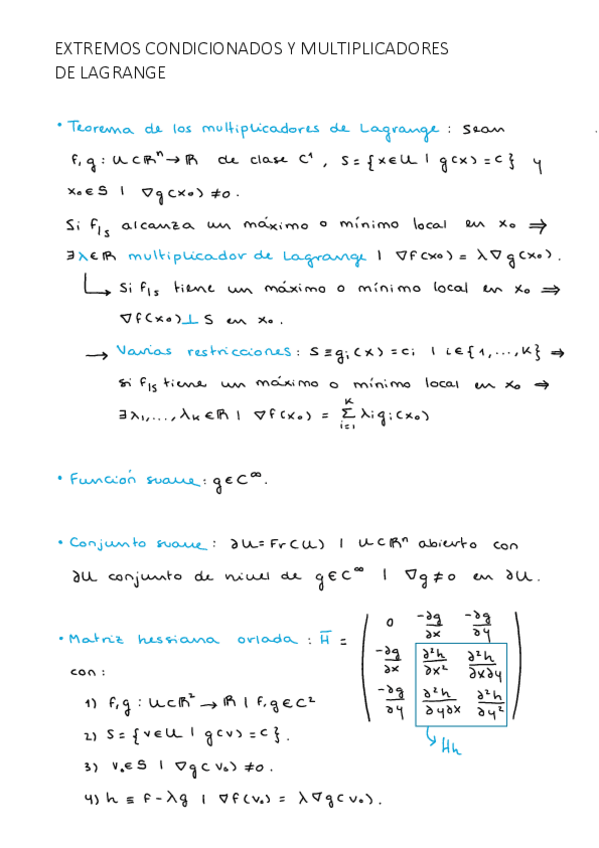 EXTREMOS CONDICIONADOS Y MULTIPLICADORES
DE LAGRANGE
• Teorema de los multiplicadores de Lagrange : Sean
f,g : U⊂ℝⁿ → ℝ de clase C¹ , S = {x∈U | g(x) = c} y
x₀∈S | ∇g(x₀) ≠ 0.
Si f|s alcanza un máximo o mínimo local en x₀ ⇒
∃λ∈ℝ multiplicador de Lagrange | ∇f(x₀) = λ∇g(x₀).
↳ Si f|s tiene un máximo o mínimo local en x₀ ⇒
∇f(x₀)⊥ S en x₀.
→ Varias restricciones : S ≡ gᵢ(x) = cᵢ | i∈{1,...,K} ⇒
si f|s tiene un máximo o mínimo local en x₀ ⇒
∃λ₁,...,λₖ∈ℝ | ∇f(x₀) = ∑ᵢ₌₁ᴷ λᵢgᵢ(x₀)
• Función suave : g∈C^∞.
• Conjunto suave : ∂U = Fr(U) | U⊂ℝⁿ abierto con
∂U conjunto de nivel de g∈C^∞ | ∇g≠0 en ∂U.
• Matriz hessiana orlada : H̄ = | 0 -∂g/∂x -∂g/∂y |
| -∂g/∂x ∂²h/∂x² ∂²h/∂x∂y |
| -∂g/∂y ∂²h/∂y∂x ∂²h/∂y² |
→ Hh
con :
1) f,g : U⊂ℝ² → ℝ | f,g∈C²
2) S = {v∈U | g(v) = c}.
3) v₀∈S | ∇g(v₀) ≠ 0.
4) h ≡ f - λg | ∇f(v₀) = λ∇g(v₀).